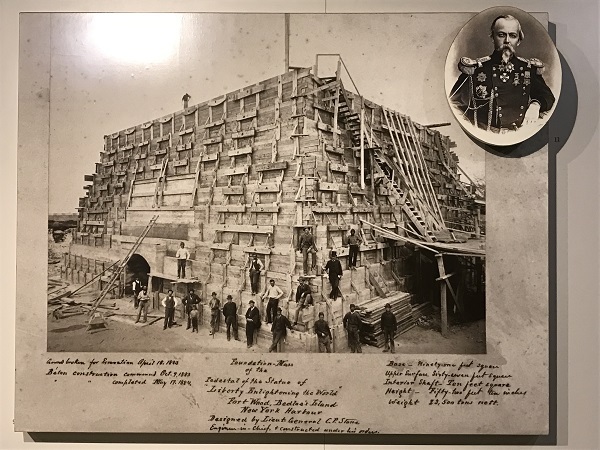 Ground broken for Foundation April 18, 1883
Béton construction commenced Oct. 9, 1883.
" " completed May 17. 1884.
Foundation-Mass
of the
Pedestal of the Statue of
"Liberty Enlightening the World"
Fort Wood, Bedloe's Island
New York Harbour
Designed by Lieut: General C. P. Stone
Engineer-in-Chief & constructed under his orders.
Base - Ninety-one feet square
Upper Surface, Sixty-seven feet square
Interior Shaft - Ten feet square
Height - Fifty-two feet ten inches
Weight 23,500 tons nett.